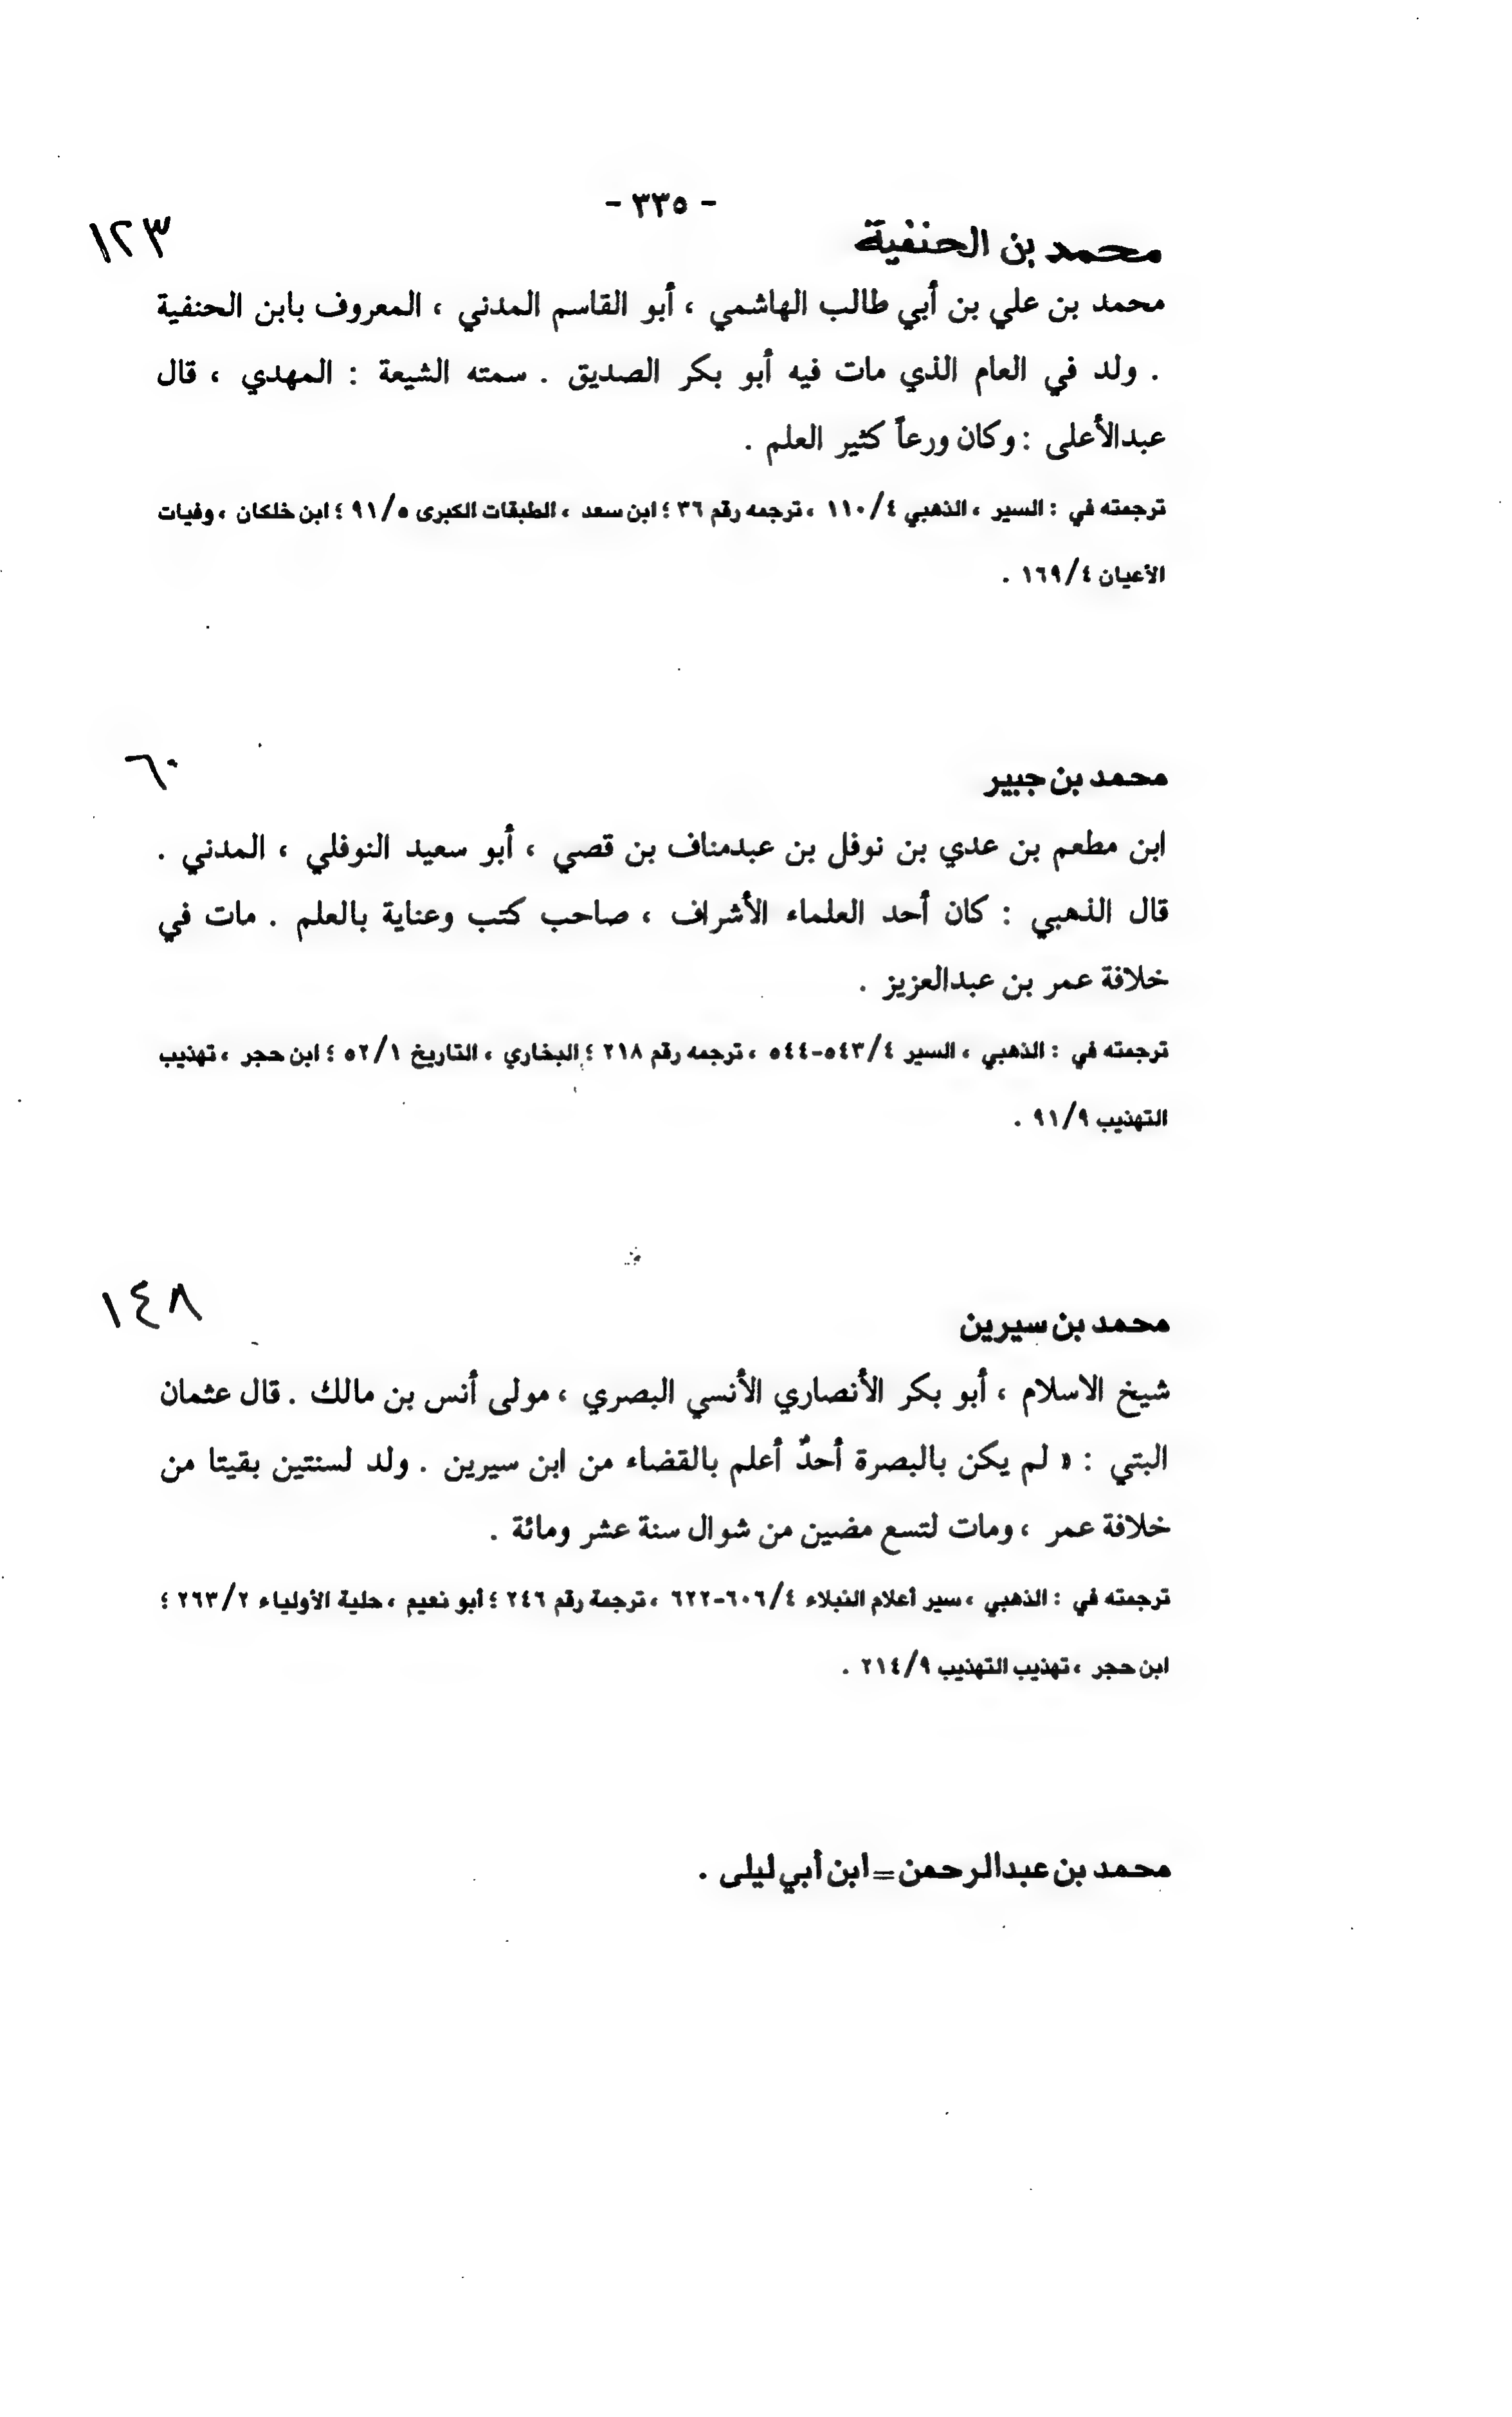 - ٣٣٥ -
محمد بن الحنفية ١٢٣
محمد بن علي بن أبي طالب الهاشمي ، أبو القاسم المدني ، المعروف بابن الحنفية
. ولد في العام الذي مات فيه أبو بكر الصديق . سمته الشيعة : المهدي ، قال
عبدالأعلى : وكان ورعاً كثير العلم .
ترجمته في : السير ، الذهبي ١١٠/٤ ، ترجمه رقم ٣٦ ؛ ابن سعد ، الطبقات الكبرى ٩١/٥ ؛ ابن خلكان ، وفيات
الأعيان ١٦٩/٤ .
محمد بن جبير ٦٠
ابن مطعم بن عدي بن نوفل بن عبدمناف بن قصي ، أبو سعيد النوفلي ، المدني .
قال الذهبي : كان أحد العلماء الأشراف ، صاحب كتب وعناية بالعلم . مات في
خلافة عمر بن عبدالعزيز .
ترجمته في : الذهبي ، السير ٥٤٣/٤-٥٤٤ ، ترجمه رقم ٢١٨ ؛ البخاري ، التاريخ ٥٢/١ ؛ ابن حجر ، تهذيب
التهذيب ٩١/٩ .
محمد بن سيرين ١٤٨
شيخ الاسلام ، أبو بكر الأنصاري الأنسي البصري ، مولى أنس بن مالك . قال عثمان
البتي : « لم يكن بالبصرة أحدٌ أعلم بالقضاء من ابن سيرين . ولد لسنتين بقيتا من
خلافة عمر ، ومات لتسع مضين من شوال سنة عشر ومائة .
ترجمته في : الذهبي ، سير أعلام النبلاء ٦٠٦/٤-٦٢٢ ، ترجمة رقم ٢٤٦ ؛ أبو نعيم ، حلية الأولياء ٢٦٣/٢ ؛
ابن حجر ، تهذيب التهذيب ٢١٤/٩ .
محمد بن عبدالرحمن = ابن أبي ليلى .